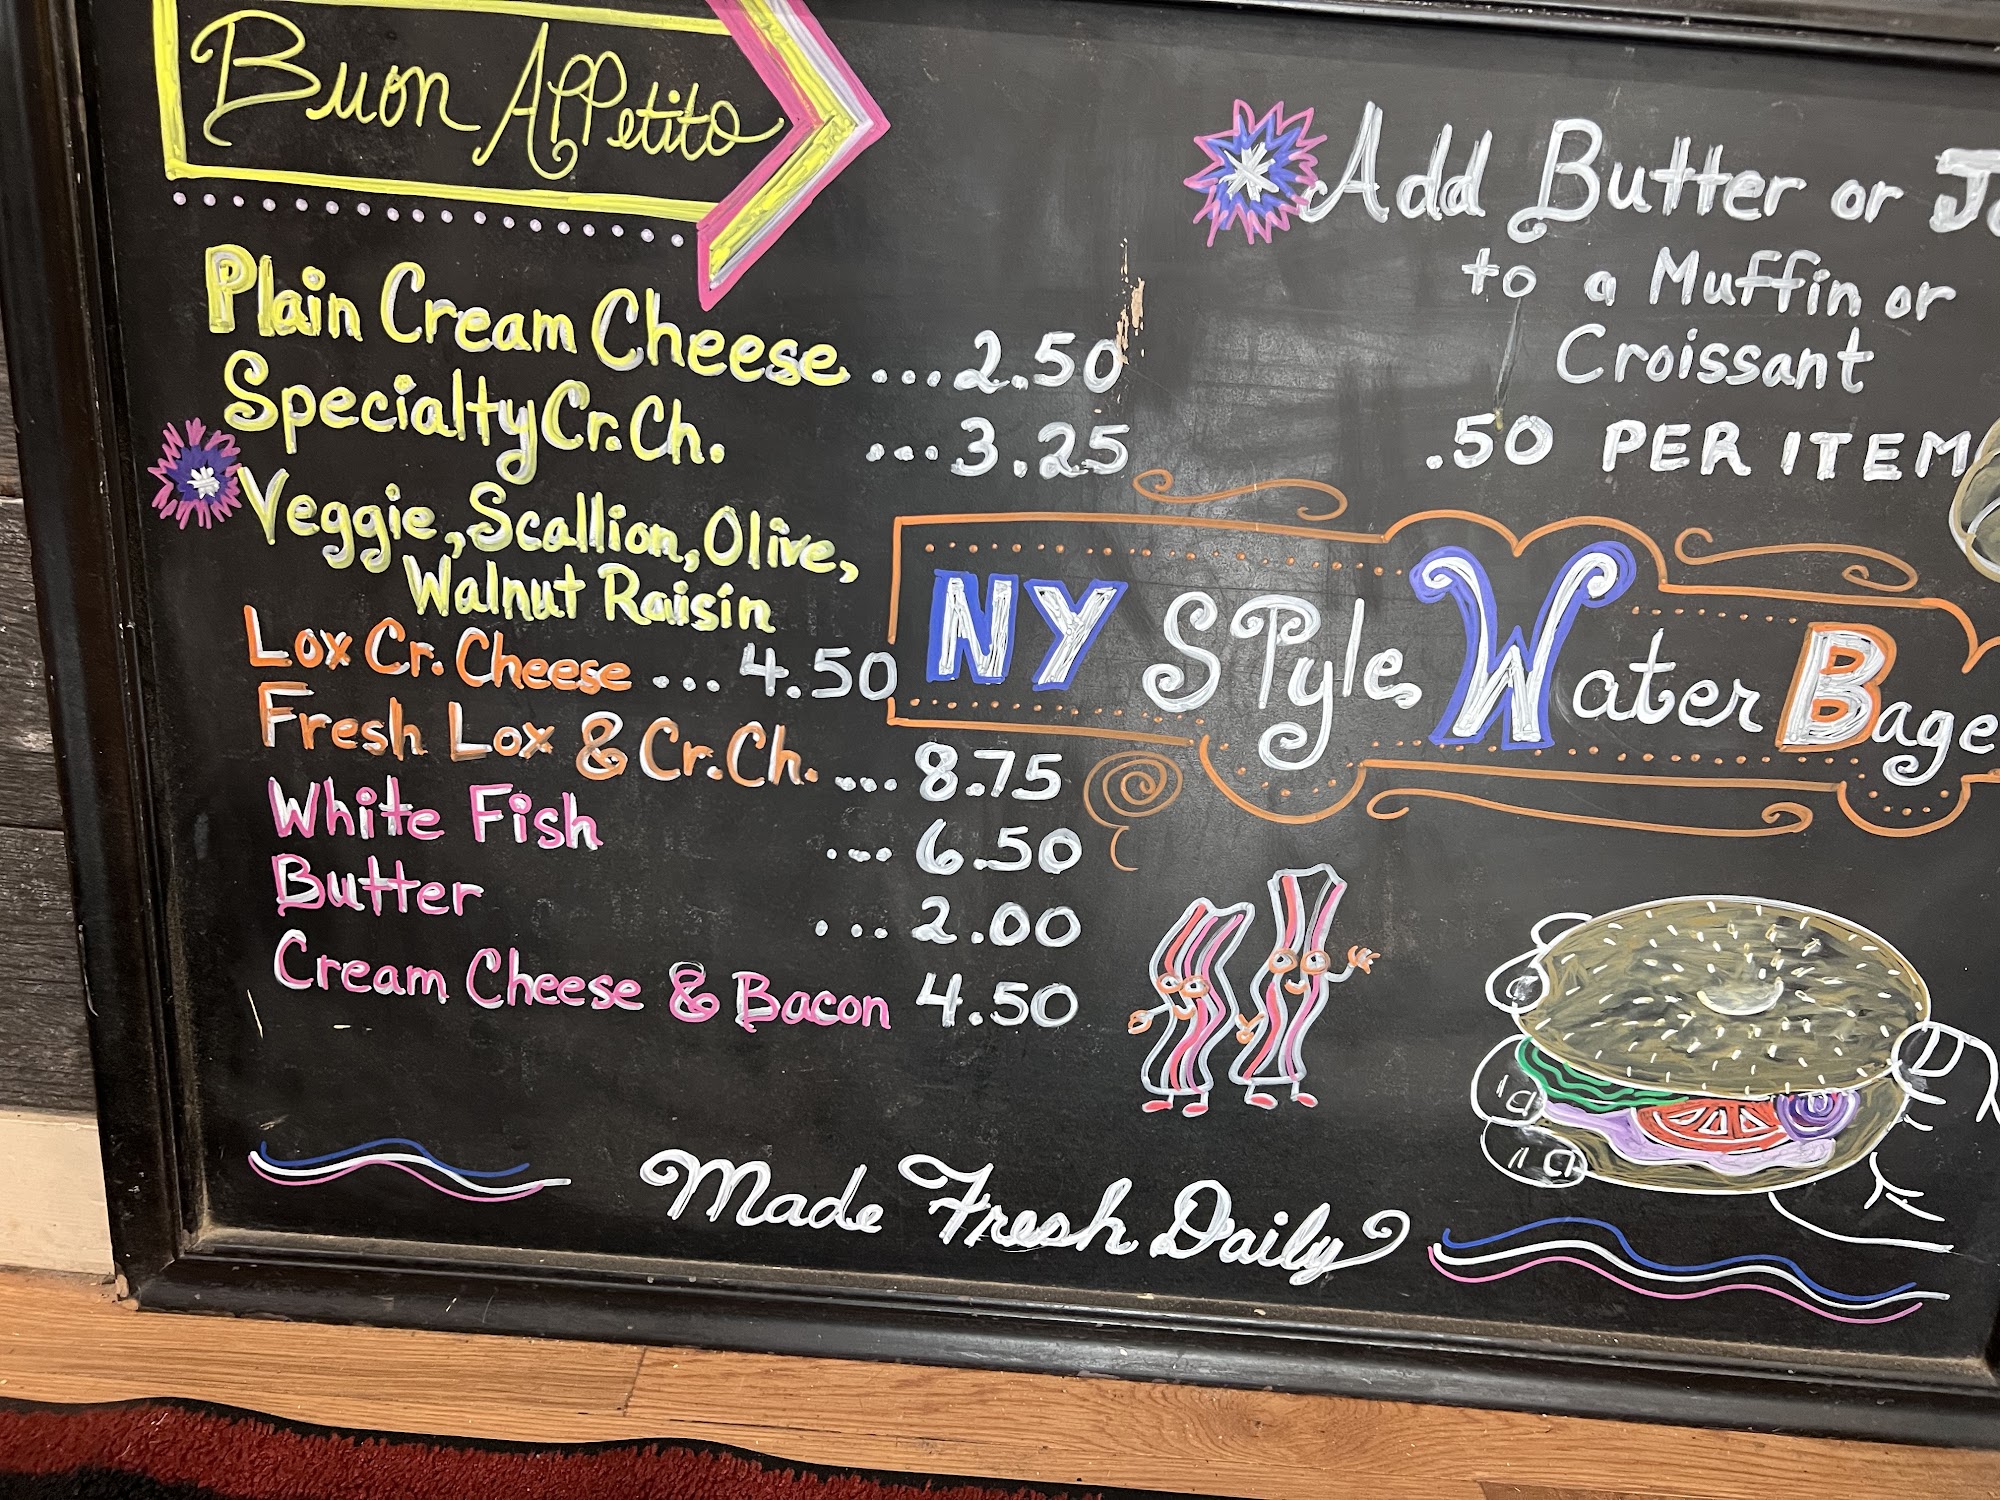 Buon Appetito
Plain Cream Cheese ...2.50
Specialty Cr. Ch. ...3.25
Veggie, Scallion, Olive,
Walnut Raisin
Lox Cr. Cheese ... 4.50
Fresh Lox & Cr. Ch. ... 8.75
White Fish ... 6.50
Butter ... 2.00
Cream Cheese & Bacon 4.50
Add Butter or
to a Muffin or
Croissant
.50 PER ITEM
NY Style Water
Made Fresh Daily